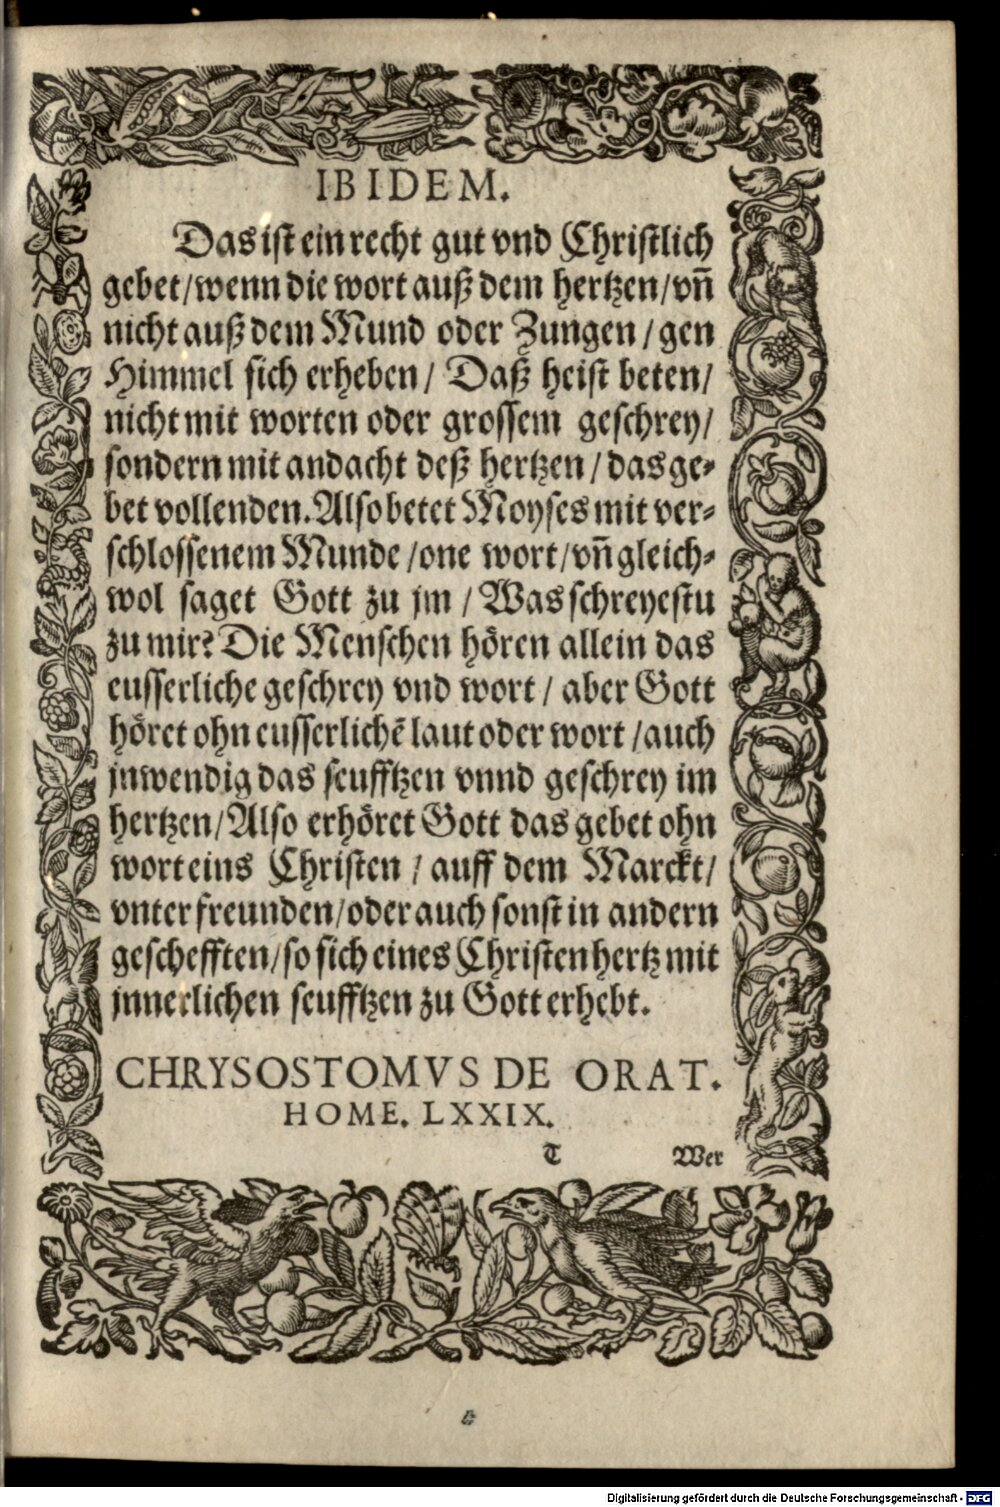 IBIDEM.
Das ist ein recht gut vnd Christlich
gebet/wenn die wort auß dem hertzen/vñ
nicht auß dem Mund oder Zungen/gen
Himmel sich erheben/ Daß heist beten/
nicht mit worten oder grossem geschrey/
sondern mit andacht deß hertzen/das ge-
bet vollenden. Also betet Moyses mit ver-
schlossenem Munde/one wort/vñ gleich-
wol saget Gott zu jm/ Was schreyestu
zu mir? Die Menschen hören allein das
eusserliche geschrey vnd wort/ aber Gott
höret ohn eusserlichẽ laut oder wort/auch
jnwendig das seufftzen vnnd geschrey im
hertzen/Also erhöret Gott das gebet ohn
wort eins Christen/ auff dem Marckt/
vnter freunden/oder auch sonst in andern
geschefften/so sich eines Christen hertz mit
jnnerlichen seufftzen zu Gott erhebt.
CHRYSOSTOMVS DE ORAT.
HOME. LXXIX.
T Wer
Digitalisierung gefördert durch die Deutsche Forschungsgemeinschaft - DFG